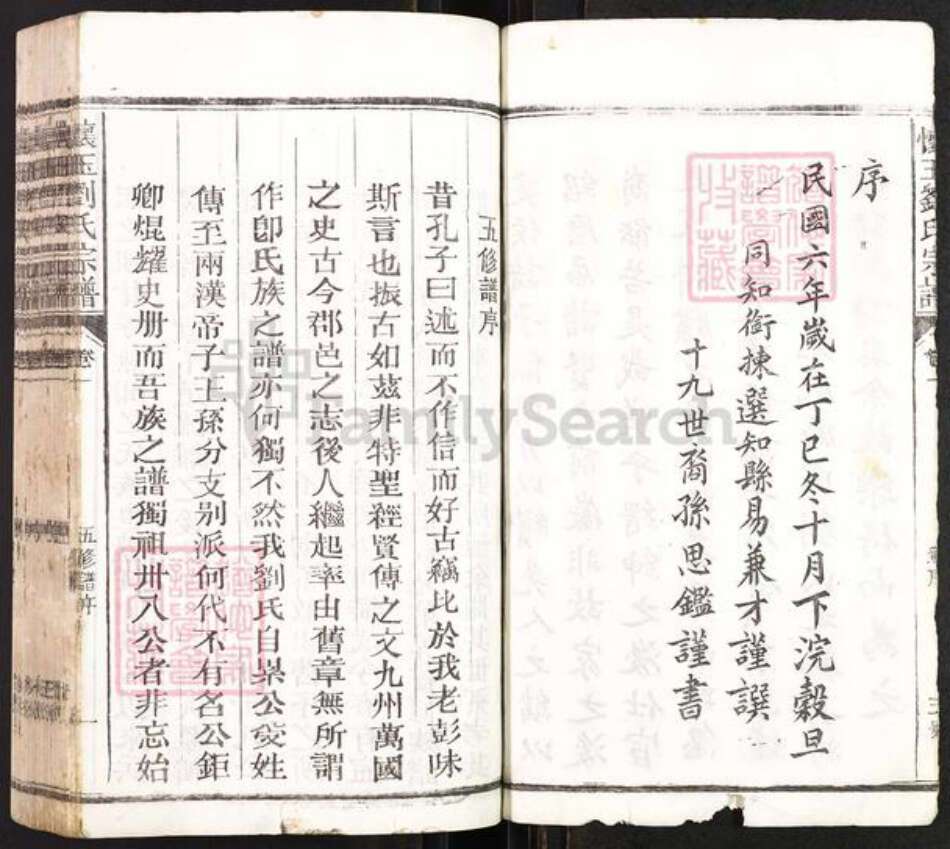 序
民國六年歲在丁巳冬十月下浣穀旦
同知銜揀選知縣易兼才謹譔
十九世裔孫思鑑謹書
五修譜序
昔孔子曰述而不作信而好古竊比於我老彭味
斯言也振古如茲非特聖經賢傳之文九州萬國
之史古今郡邑之志後人繼起率由舊章無所謂
作卽氏族之譜亦何獨不然我劉氏自累公受姓
傳至兩漢帝子王孫分支别派何代不有名公鉅
卿焜耀史册而吾族之譜獨祖卅八公者非忘始
懷玉劉氏宗譜
卷
五修譜序
一
FamilySearch